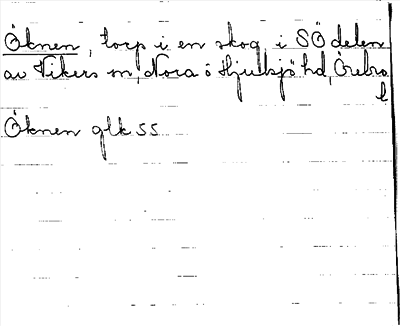 Öknen, torp i en skog i SÖ delen
av Vikers sn, Nora o Hjulsjö hd, Örebro
l
Öknen glk SS